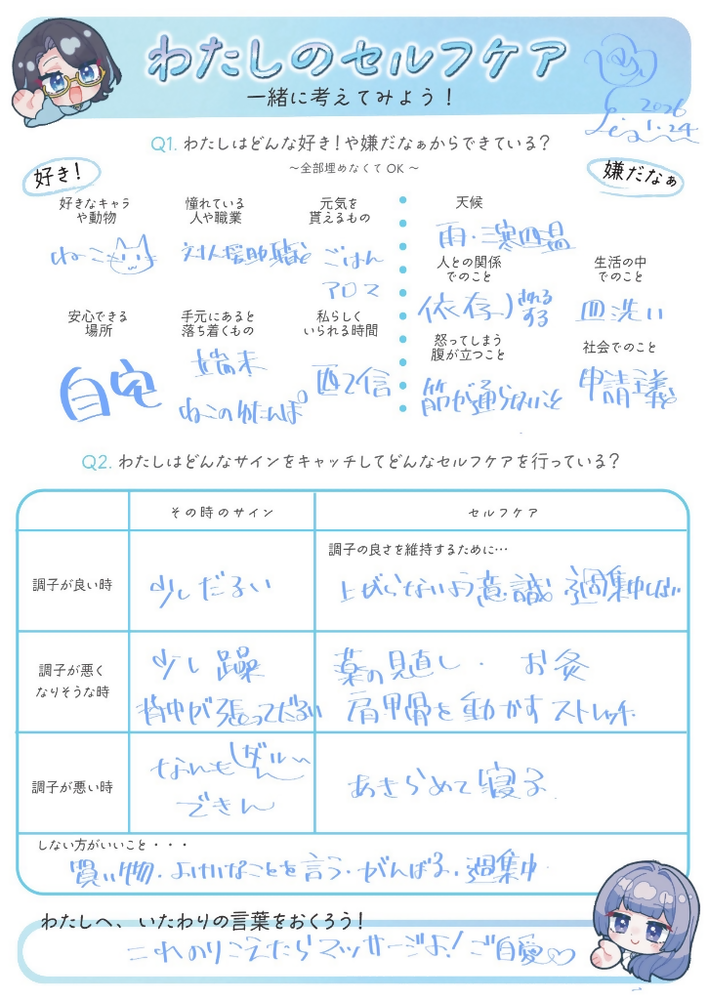 わたしのセルフケア
一緒に考えてみよう！
2026
1.24
Q1. わたしはどんな好き！や嫌だなぁからできている？
～全部埋めなくてOK～
好き！
嫌だなぁ
好きなキャラ
や動物
ねこ
憧れている
人や職業
対人援助職
元気を
貰えるもの
ごはん
アロマ
天候
雨・三寒四温
安心できる
場所
自宅
手元にあると
落ち着くもの
端末
ねこのゆたんぽ
私らしく
いられる時間
配信
人との関係
でのこと
依存
される
する
生活の中
でのこと
皿洗い
怒ってしまう
腹が立つこと
筋が通らないこと
社会でのこと
申請主義
Q2. わたしはどんなサインをキャッチしてどんなセルフケアを行っている？
その時のサイン
セルフケア
調子が良い時
少しだるい
調子の良さを維持するために…
上がらないよう意識 過集中しない
調子が悪く
なりそうな時
少し躁
背中が張ってだるい
薬の見直し・お灸
肩甲骨を動かすストレッチ
調子が悪い時
なんも
できん
あきらめて寝る
しない方がいいこと・・・
買い物・よけいなことを言う・がんばる・過集中
わたしへ、いたわりの言葉をおくろう！
これのりこえたらマッサージよ！ご自愛♡